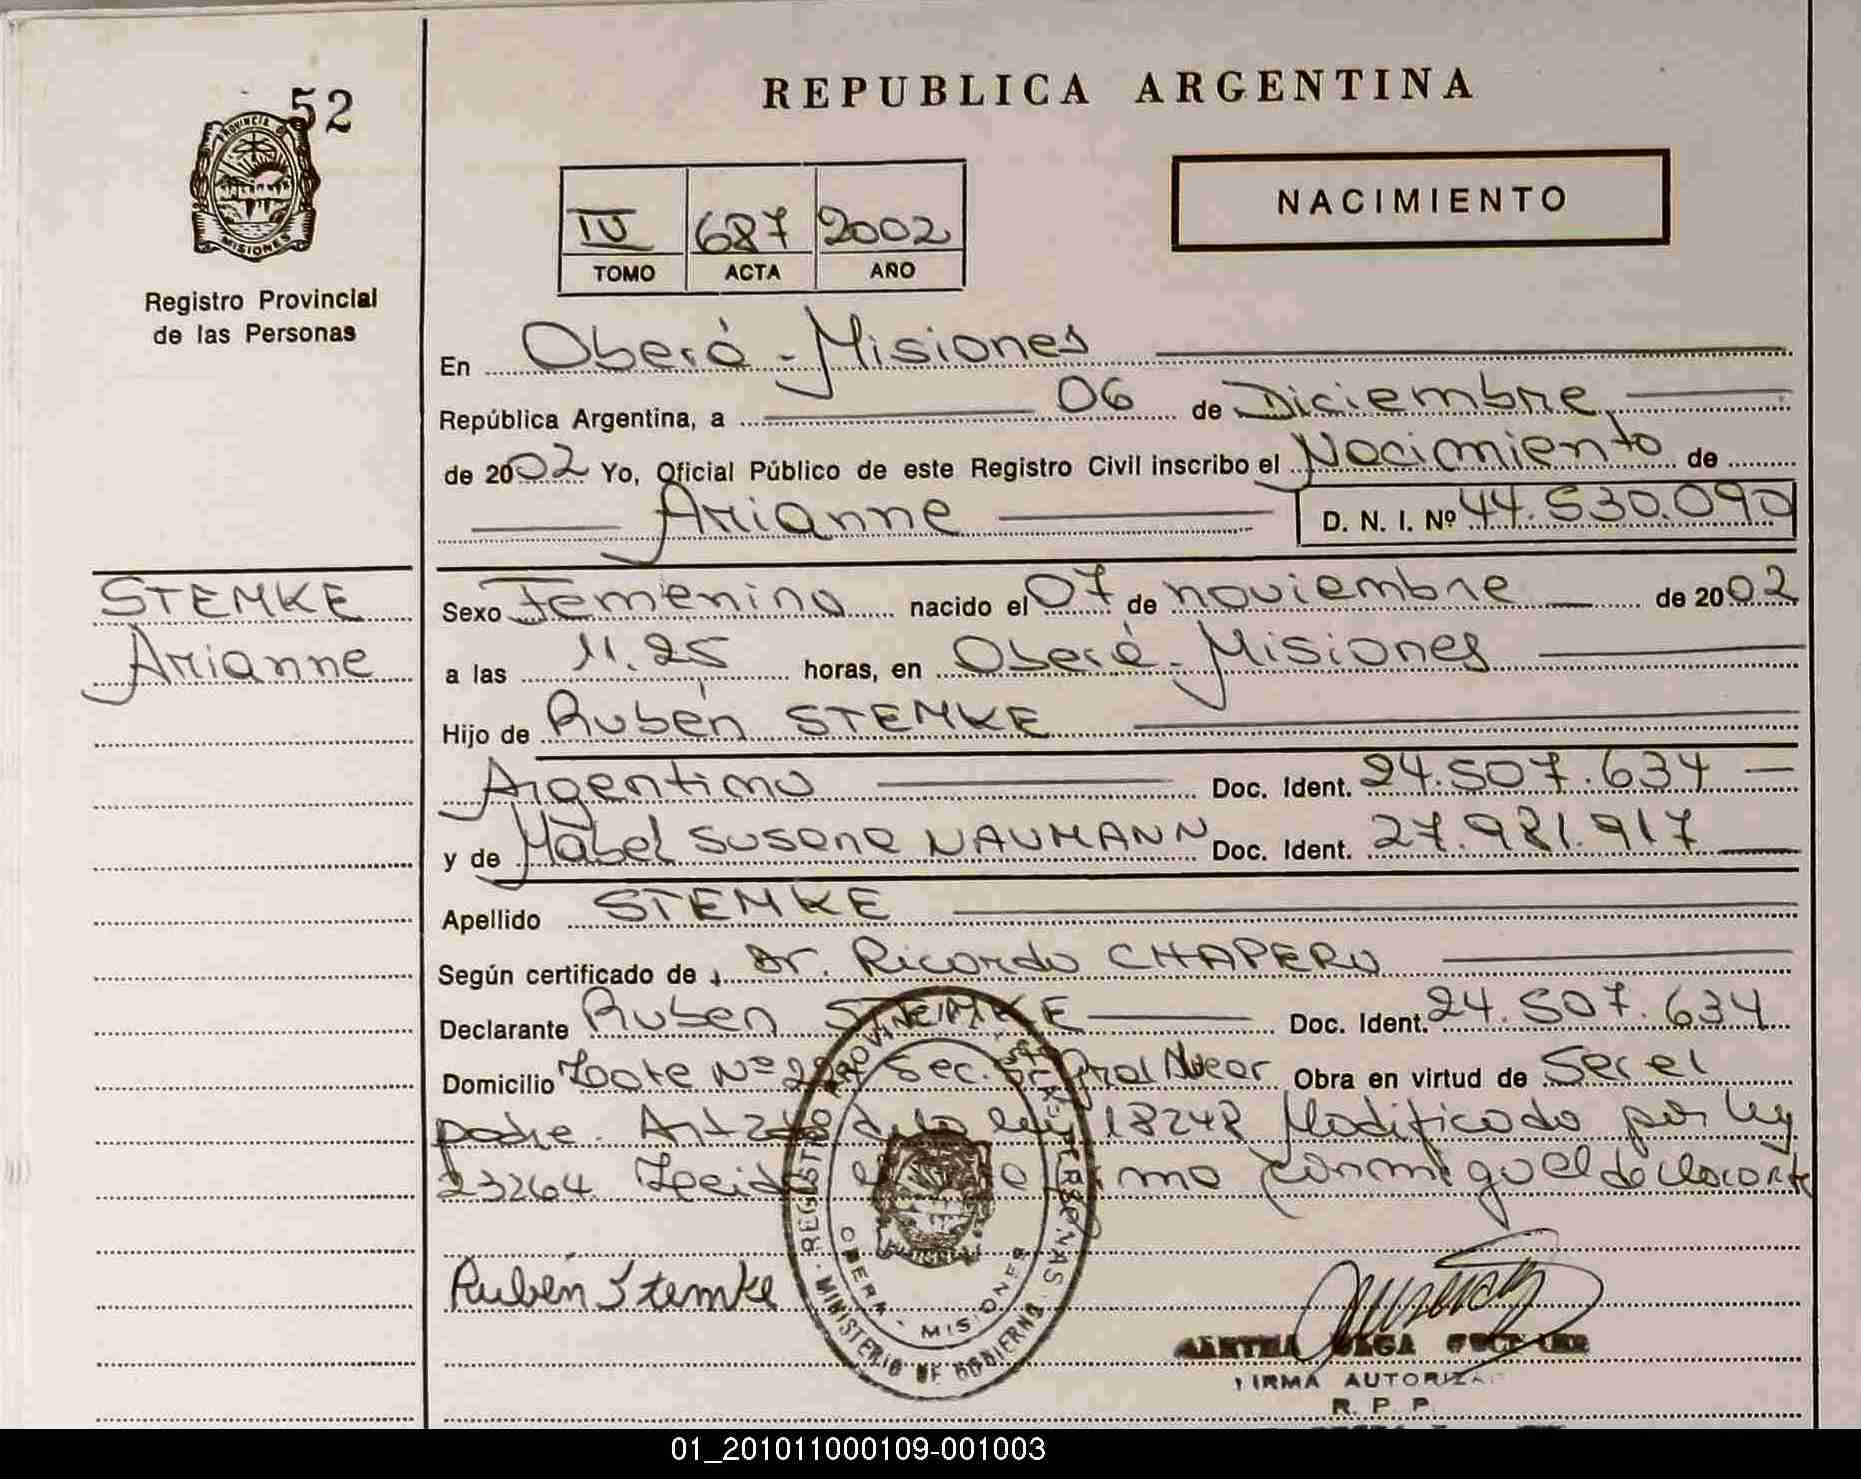 52
PROVINCIA DE
MISIONES
Registro Provincial
de las Personas
REPUBLICA ARGENTINA
NACIMIENTO
IV 687 2002
TOMO ACTA AÑO
En Oberá - Misiones
República Argentina, a 06 de Diciembre
de 2002 Yo, Oficial Público de este Registro Civil inscribo el Nacimiento de
Arianne D. N. I. Nº 44.530.090
STEMKE
Arianne
Sexo Femenino nacido el 07 de noviembre de 2002
a las 11.25 horas, en Oberá - Misiones
Hijo de Rubén STEMKE
Argentino Doc. Ident. 24.507.634
y de Mabel Susana NAUMANN Doc. Ident. 27.981.917
Apellido STEMKE
Según certificado de Dr. Ricardo CHAPERO
Declarante Ruben STEMKE Doc. Ident. 24.507.634
Domicilio Lote Nº Sec. Gral Alvear Obra en virtud de Ser el
padre. Art de la ley 18248 Modificado por ley
23264. conmigo el declarante
Rubén Stemke
REGISTRO PROVINCIAL DE LAS PERSONAS
OBERA - MISIONES
MINISTERIO DE GOBIERNO
MARTHA OLGA
FIRMA AUTORIZA
R. P. P.
01_201011000109-001003